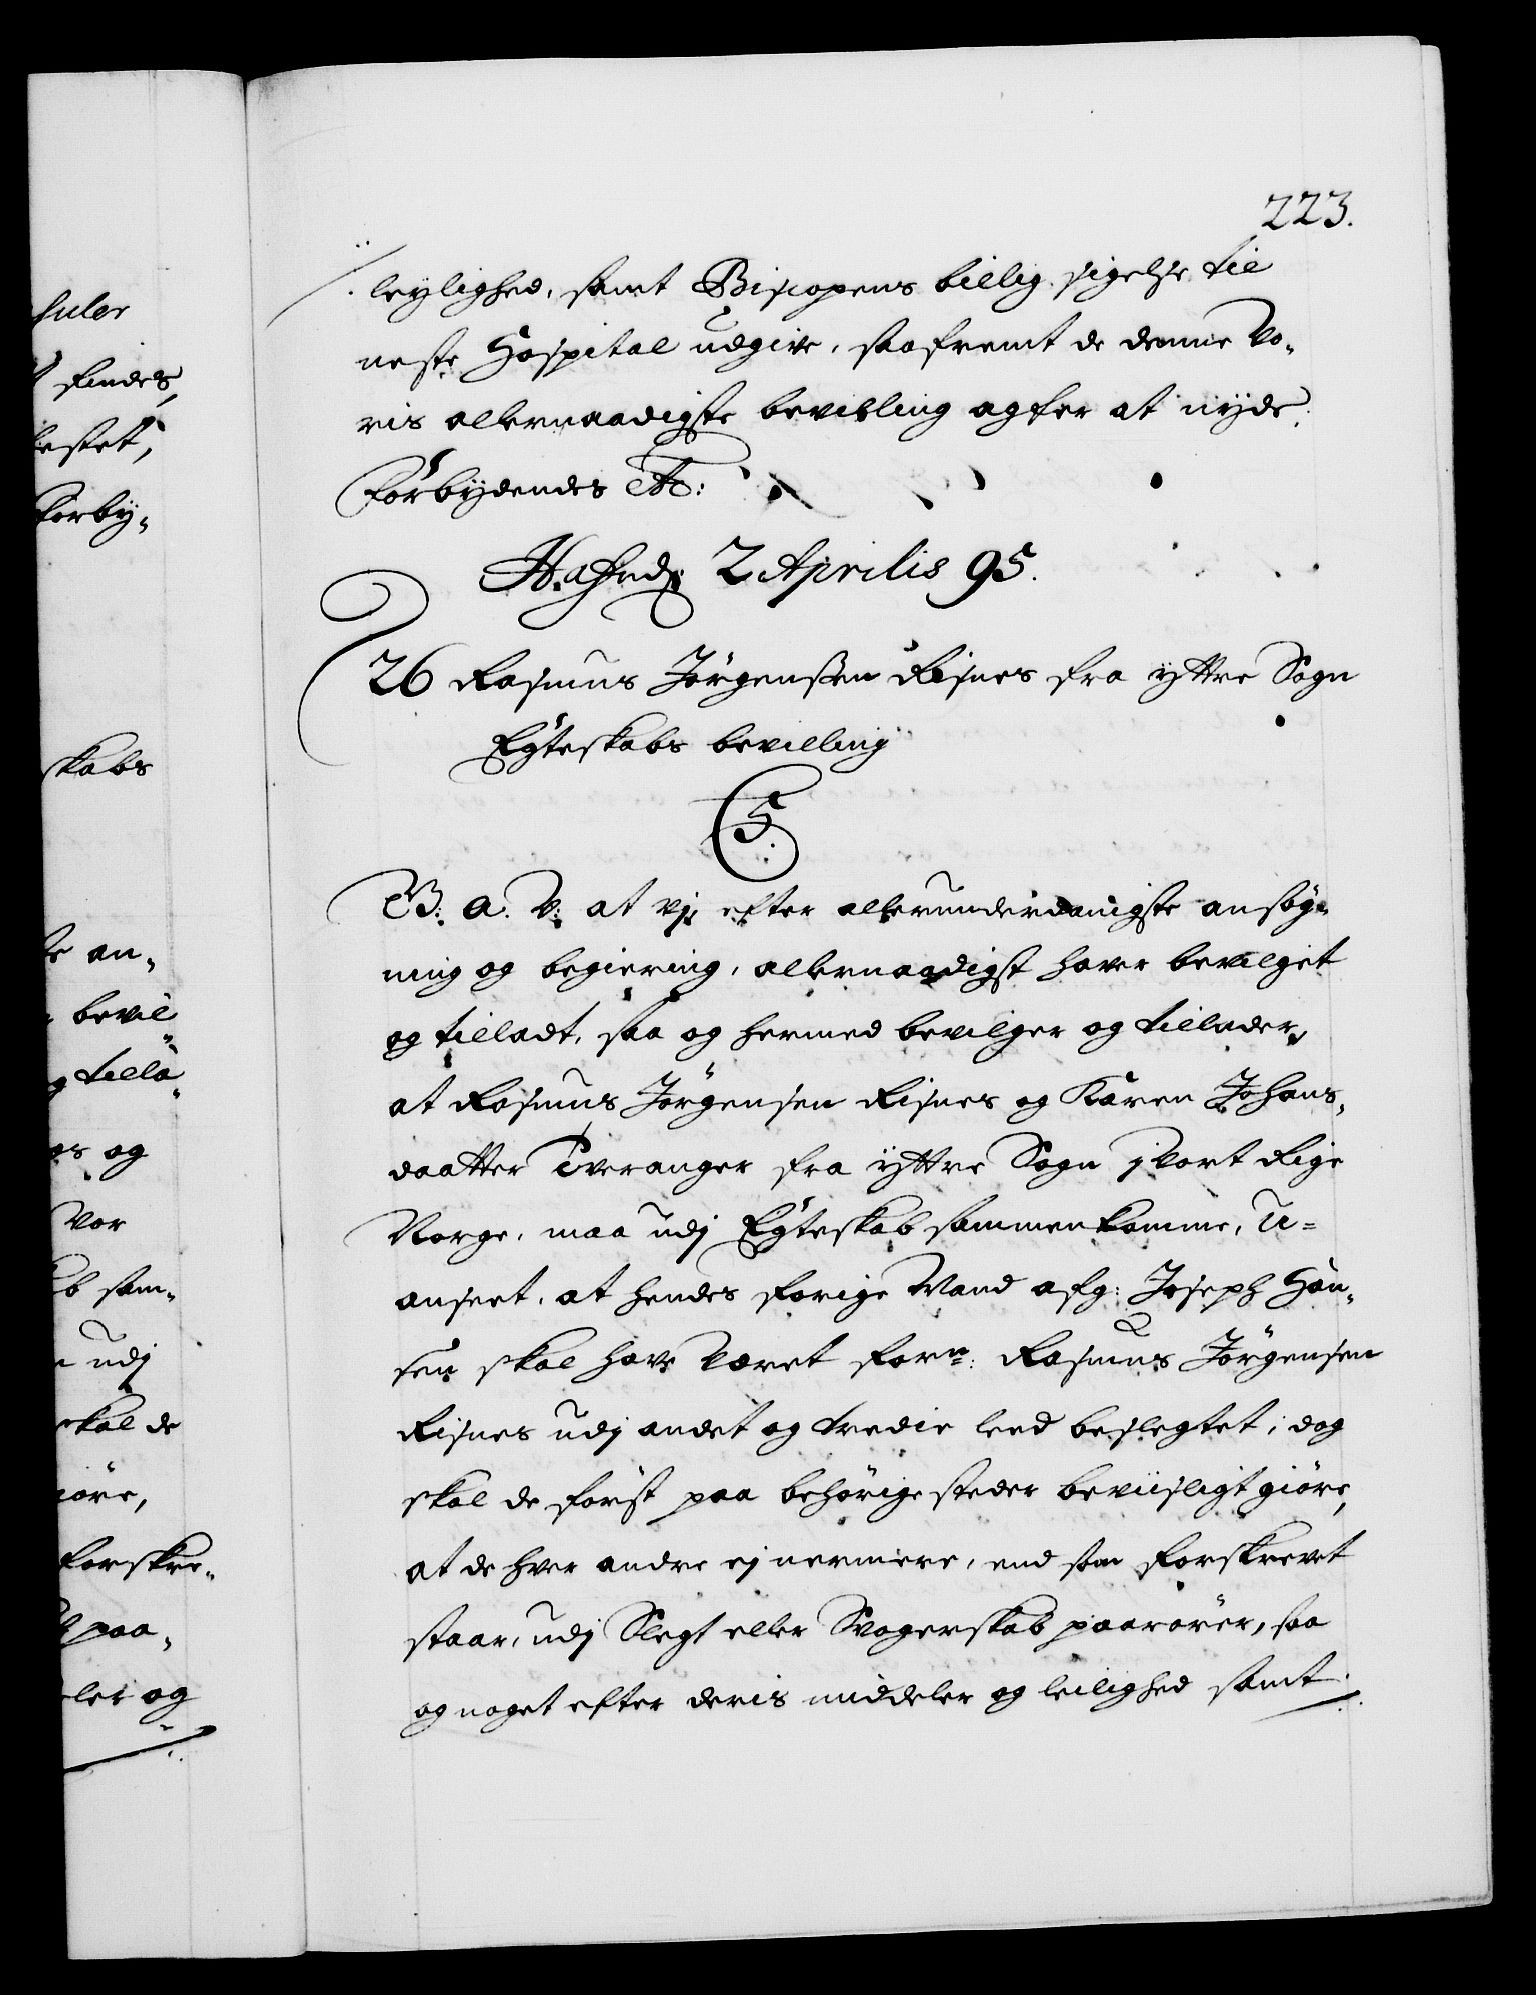 223.
leylighed, samt Biscopens billig sigelse til
neste Hospital udgive, saafremt de denne Vo-
ris allernaadigste bevilling agter at nyde.
Forbydendes etc:
Hafnd: 2 Aprilis 95.
26 Rasmus Jörgenssen Risnes fra yttre Sogn
Egteskabs bevilling
C5.
G. a. V: at vj efter allerunderdanigste ansög-
ning og begiering, allernaadigst haver bevilget
og tilladt, saa og hermed bevilger og tillader,
at Rasmus Jörgensen Risnes og Karen Johans-
daatter Tveranger fra yttre Sogn j Vort Rige
Norge, maa udj Egteskab sammenkomme, U-
anseet, at hendes forige Mand afg: Joseph Han-
sen skal have været forn: Rasmus Jörgensen
Risnes udj andet og tredie leed beslegtet; dog
skal de först paa behörige steder beviisligt giöre,
at de hver andre ej nermere, end som forskrevet
staar, udj Slegt eller Svogerskab paarörer, saa
og noget efter deris middeler og leilighed samt
huler
findes,
estet,
forby-
skabs
te an-
bevil
g tilla-
os og
Vor
ab sam-
udj
skal de
iöre,
forskre-
paa-
ler og